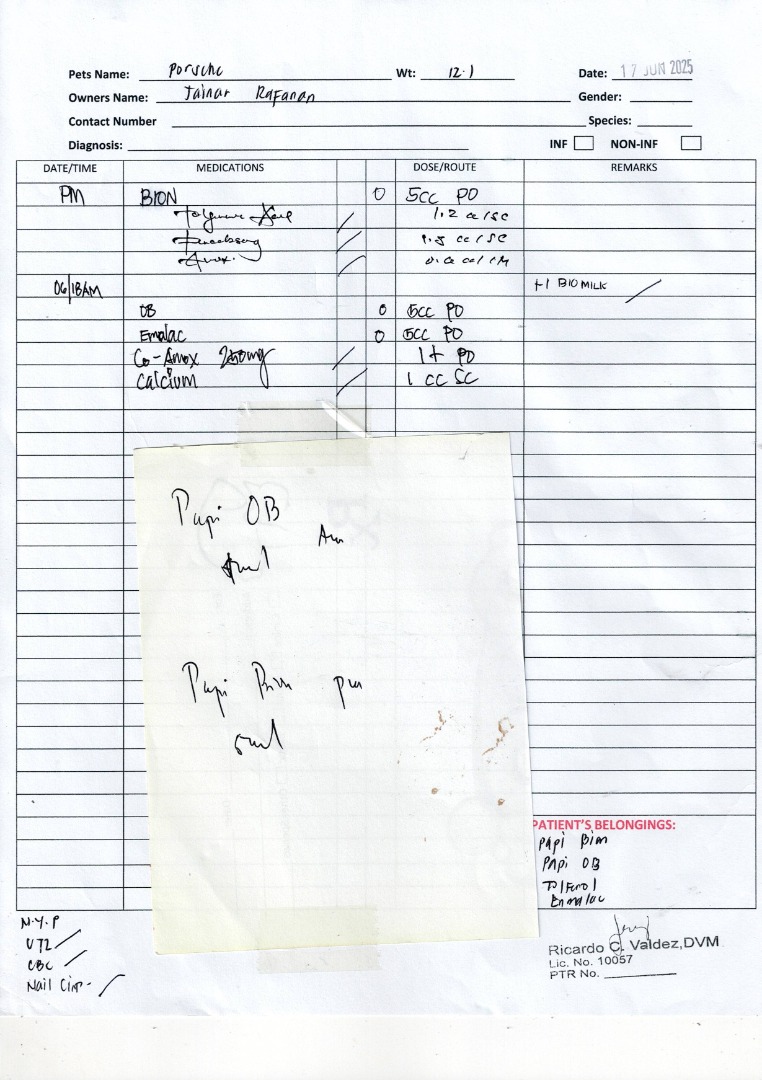 Pets Name: Porsche Wt: 12.1 Date: 17 JUN 2025
Owners Name: Jainar Rafanan Gender:
Contact Number Species:
Diagnosis: INF NON-INF
DATE/TIME MEDICATIONS DOSE/ROUTE REMARKS
PM BION 0 5cc PO
1.2 cc/SC
1.5 cc/SC
Amox.
06/18AM +1 BIO MILK
OB 0 5cc PO
Emalac 0 5cc PO
Co-Amox 250mg 1 t PO
Calcium 1 cc SC
Papi OB
Am
Papi pm
5ml
PATIENT'S BELONGINGS:
Papi Bim
Papi OB
Tolferol
Enmalac
N.Y.P
UTZ
CBC
Nail Clip-
Ricardo C. Valdez, DVM
Lic. No. 10057
PTR No.